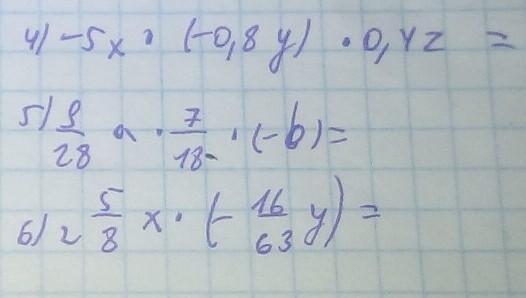 4) -5x · (-0,8y) · 0,4z =
5) 9/28 a · 7/18 · (-b) =
6) 2 5/8 x · (- 16/63 y) =